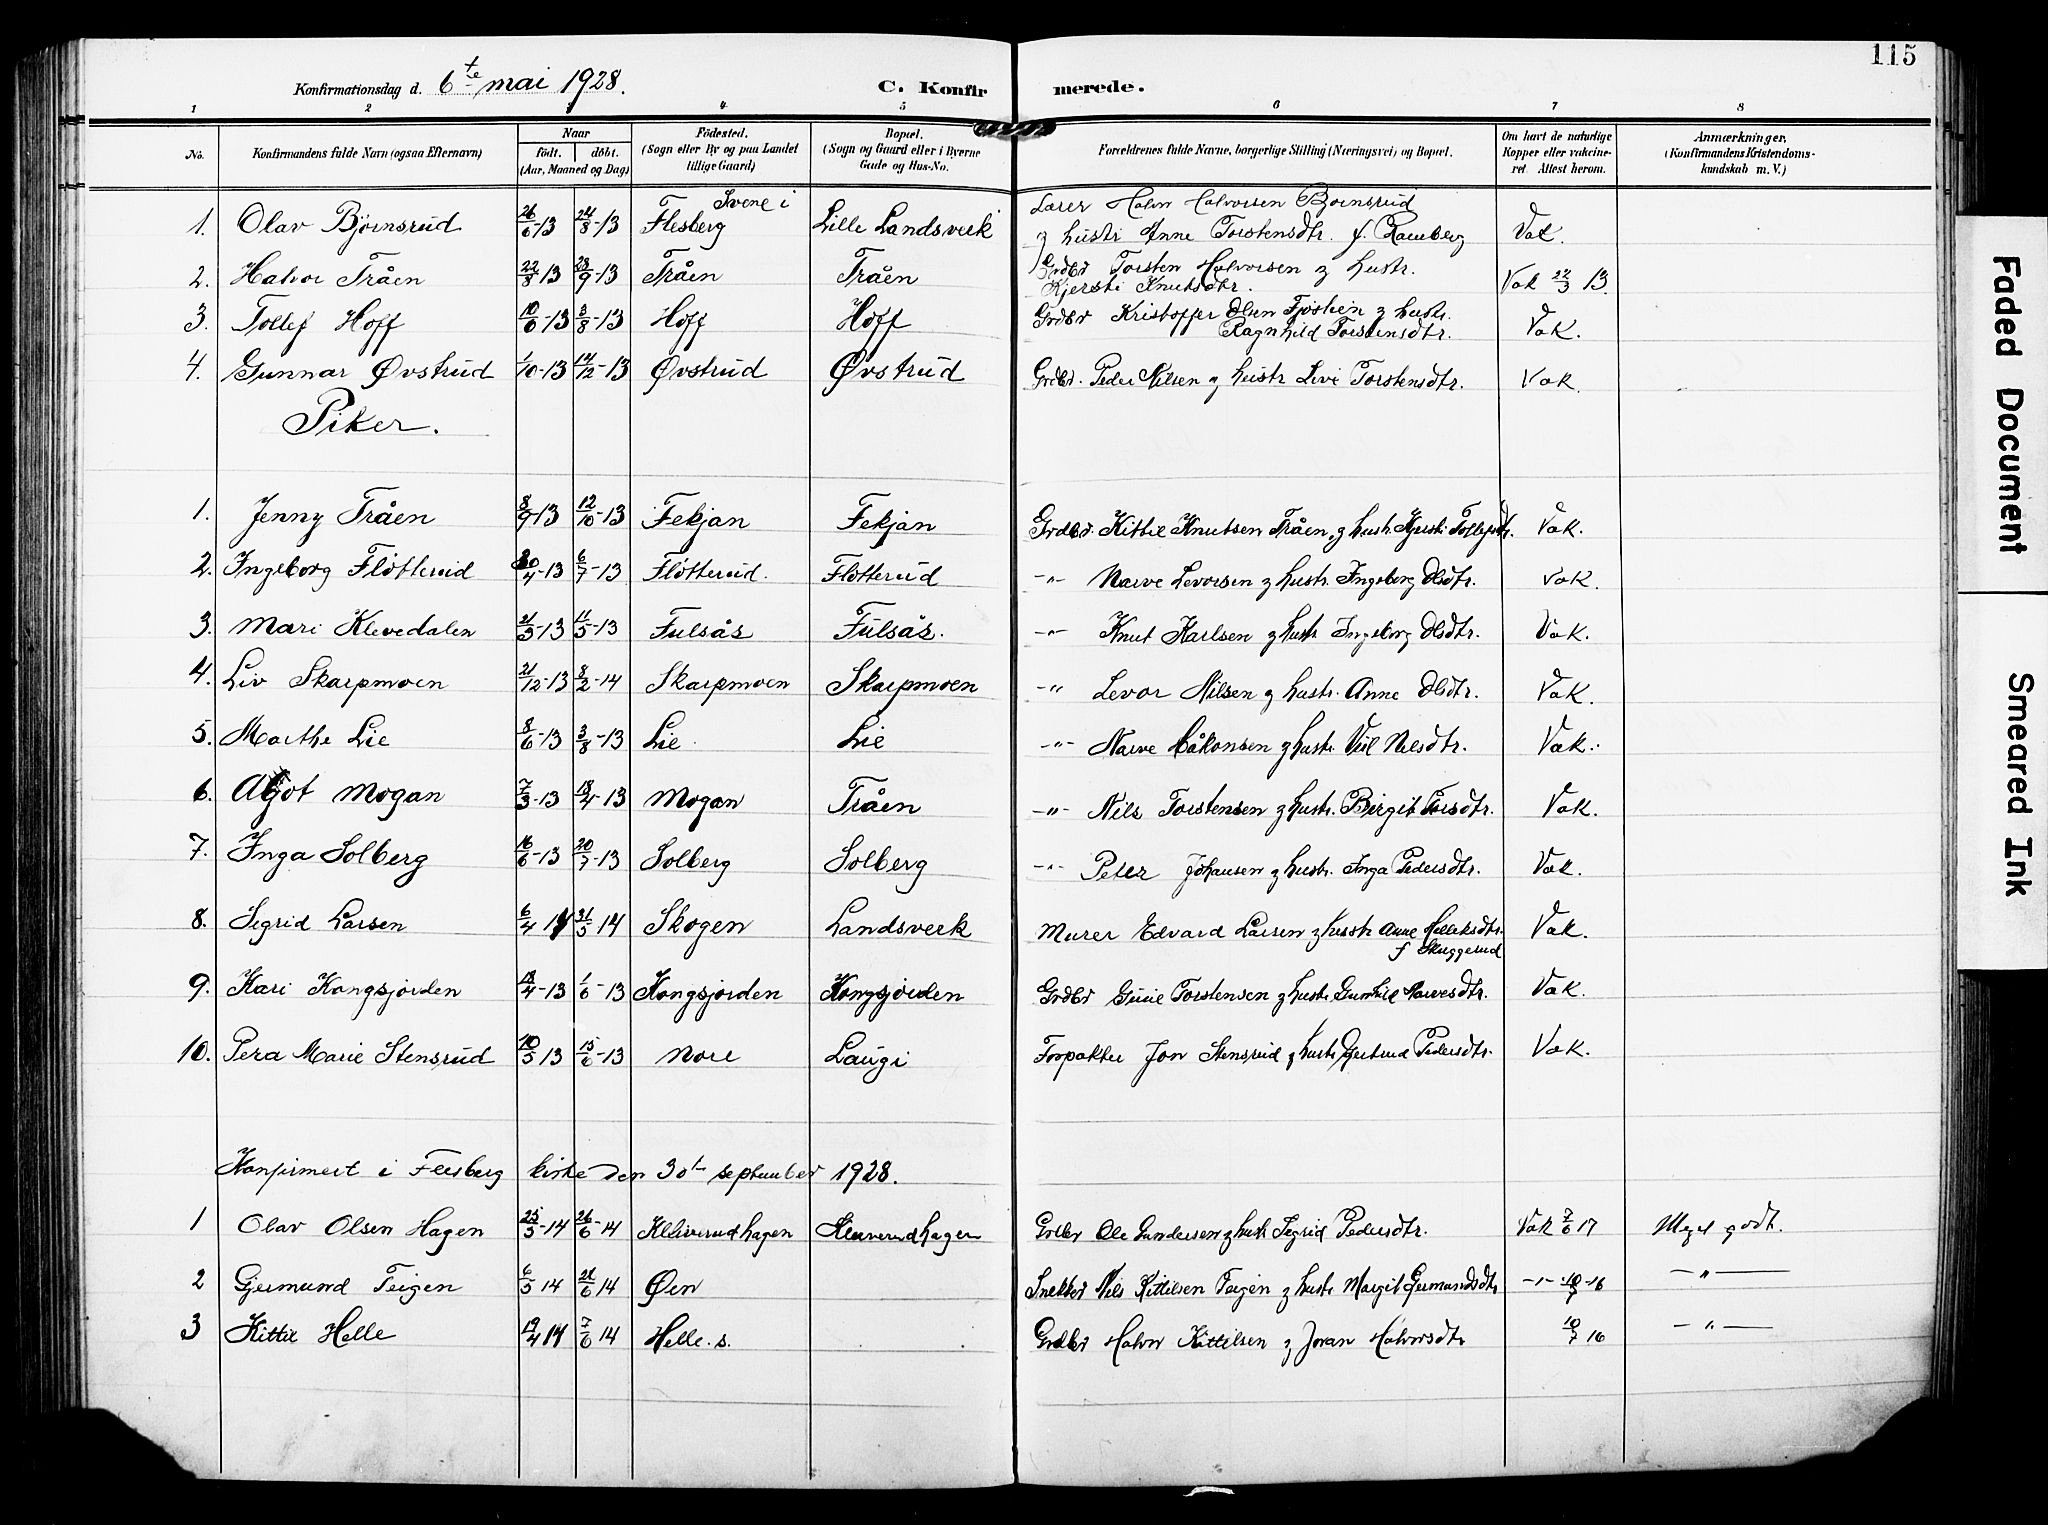 115
Konfirmationsdag d. 6te mai 1928. C. Konfirmerede.
1 2 3 4 5 6 7 8
No. Konfirmandens fulde Navn (ogsaa Efternavn) Naar født. døbt. (Aar, Maaned og Dag) Fødested. (Sogn eller By og paa Landet tillige Gaard) Bopæl. (Sogn og Gaard eller i Byerne Gade og Hus-No. Forældrenes fulde Navne, borgerlige Stilling (Næringsvei) og Bopæl. Om havt de naturlige Kopper eller vakcineret. Attest herom. Anmærkninger, (Konfirmandens Kristendomskundskab m. V.)
1. Olav Bjørnsrud 26/6-13 24/8-13 Svene i Flesberg Lille Landsverk Lærer Halvor Halvorsen Bjørnsrud
og hustr Anne Torstensdtr. f. Ramberg Vak.
2. Halvor Tråen 22/8 13 28/9-13 Tråen Tråen Grdbr Torsten Halvorsen og hustr.
Kjersti Knutsdtr. Vak 22/3 13.
3. Tollef Hoff 10/6-13 3/8-13 Hoff Hoff Grdbr Kristoffer Olsen Fjøshein og hustr.
Ragnhild Torstensdtr. Vak.
4. Gunnar Øvstrud 1/10-13 14/12-13 Øvstrud Øvstrud Grdbr. Peder Nilsen og hustr Livi Torstensdtr. Vak.
Piker.
1. Jenny Tråen 8/9-13 12/10-13 Fekjan Fekjan Grdbr. Kittil Knutsen Tråen og hustr. Kjersti Tollefsdtr. Vak.
2. Ingeborg Fløtterud 30/4-13 6/7-13 Fløtterud. Fløtterud -"- Narve Levorsen og hustr. Ingeborg Olsdtr. Vak.
3. Mari Klevedalen 21/3-13 11/5-13 Fulsås Fulsås. -"- Knut Karlsen og hustr Ingeborg Olsdtr. Vak.
4. Liv Skarpmoen 21/12-13 8/2-14 Skarpmoen Skarpmoen -"- Levor Nilsen og hustr. Anne Olsdtr. Vak.
5. Marthe Lie 8/6-13 3/8-13 Lie Lie -"- Narve Håkonsen og hustr. Nilsdtr. Vak.
6. Agot Mogan 7/3-13 13/4-13 Mogan Tråen -"- Nils Torstensen og hustr. Birgit Torsdtr. Vak.
7. Inga Solberg 16/6-13 20/7-13 Solberg Solberg -"- Peter Johansen og hustr. Inga Pedersdtr. Vak.
8. Sigrid Larsen 6/4 14 31/5 14 Skogen Landsverk Murer Edvard Larsen og hustr Anne Helleksdtr.
f Skuggerud Vak.
9. Kari Kongsjorden 13/4-13 1/6-13 Kongsjorden Kongsjorden Grdbr Torstensen og hustr. Gunhild Narvesdtr. Vak.
10. Pera Marie Stensrud 10/5 13 15/6-13 Nore Laugi Forpakter Jon Stensrud og hustr Gertrud Pedersdtr. Vak.
Konfirmert i Flesberg kirke den 30t september 1928.
1 Olav Olsen Hagen 25/3-14 26/6-14 Kleiverudhagen Kleiverudhagen Grdbr Ole Gundersen og hustr Sigrid Pedersdtr. Vak 7/6 17 Meget godt.
2 Gjermund Teigen 6/5 14 21/6 14 Øen Snekker Nils Kittilsen Teigen og hustr Margit Germundsdtr -"- -16 -"-
3 Kittil Helle 19/4 14 7/6 14 Helle. s. Grdbr Halvor Kittilsen og Joran Halvorsdtr 10/7 16 -"-
Faded Document
Smeared Ink